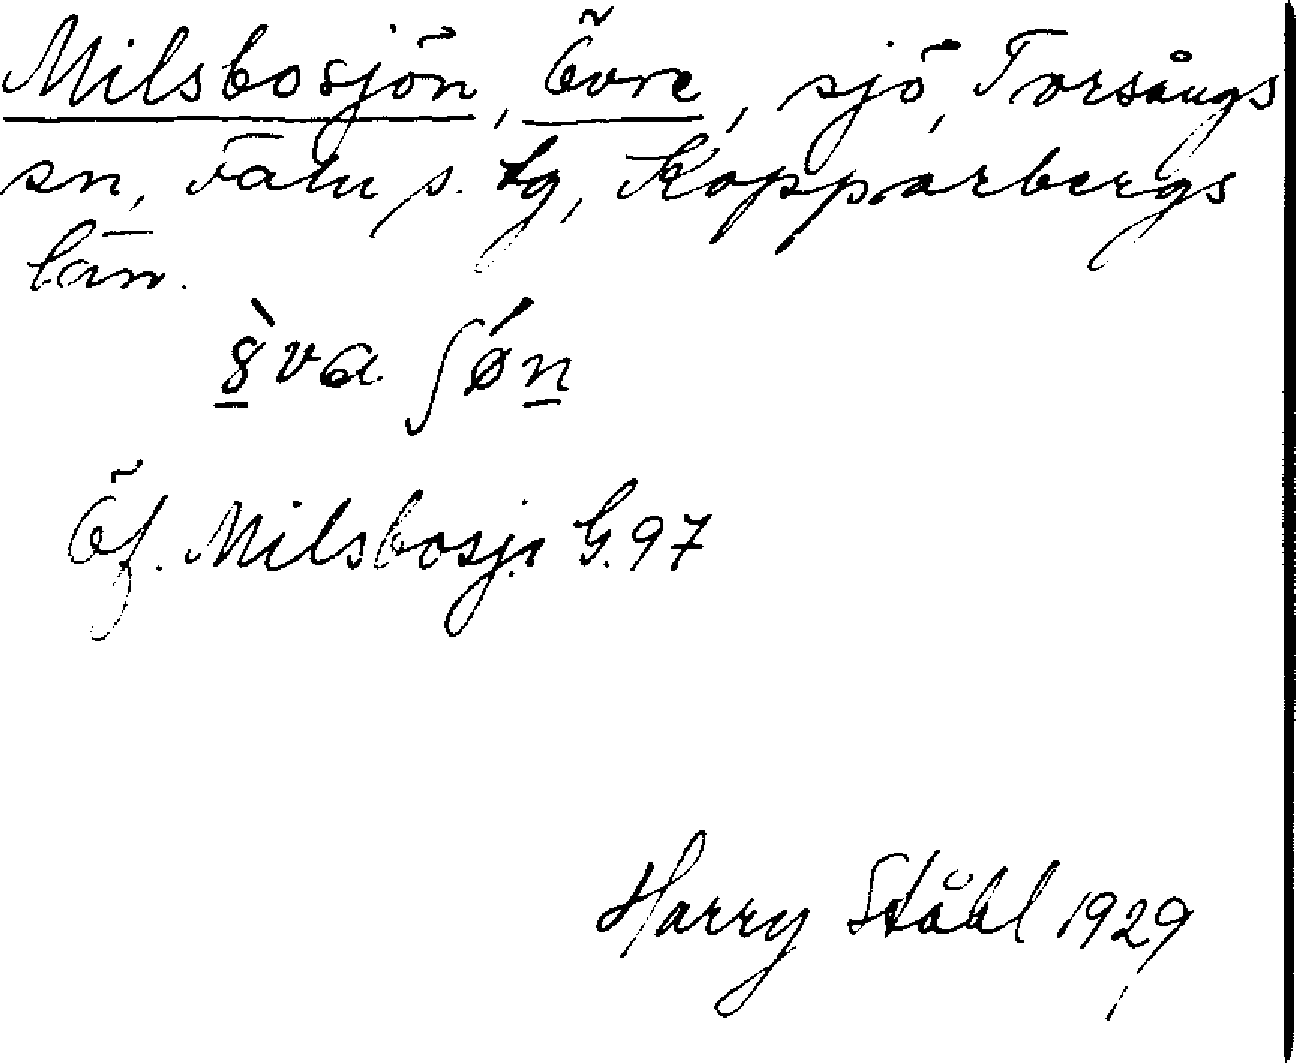 Milsbosjön, Övre, sjö, Torsångs
sn, Falu s. tg, Kopparbergs
län.
8̱̀va ʃǿṉ
Öf. Milsbosj. G. 97
Harry Ståhl 1929